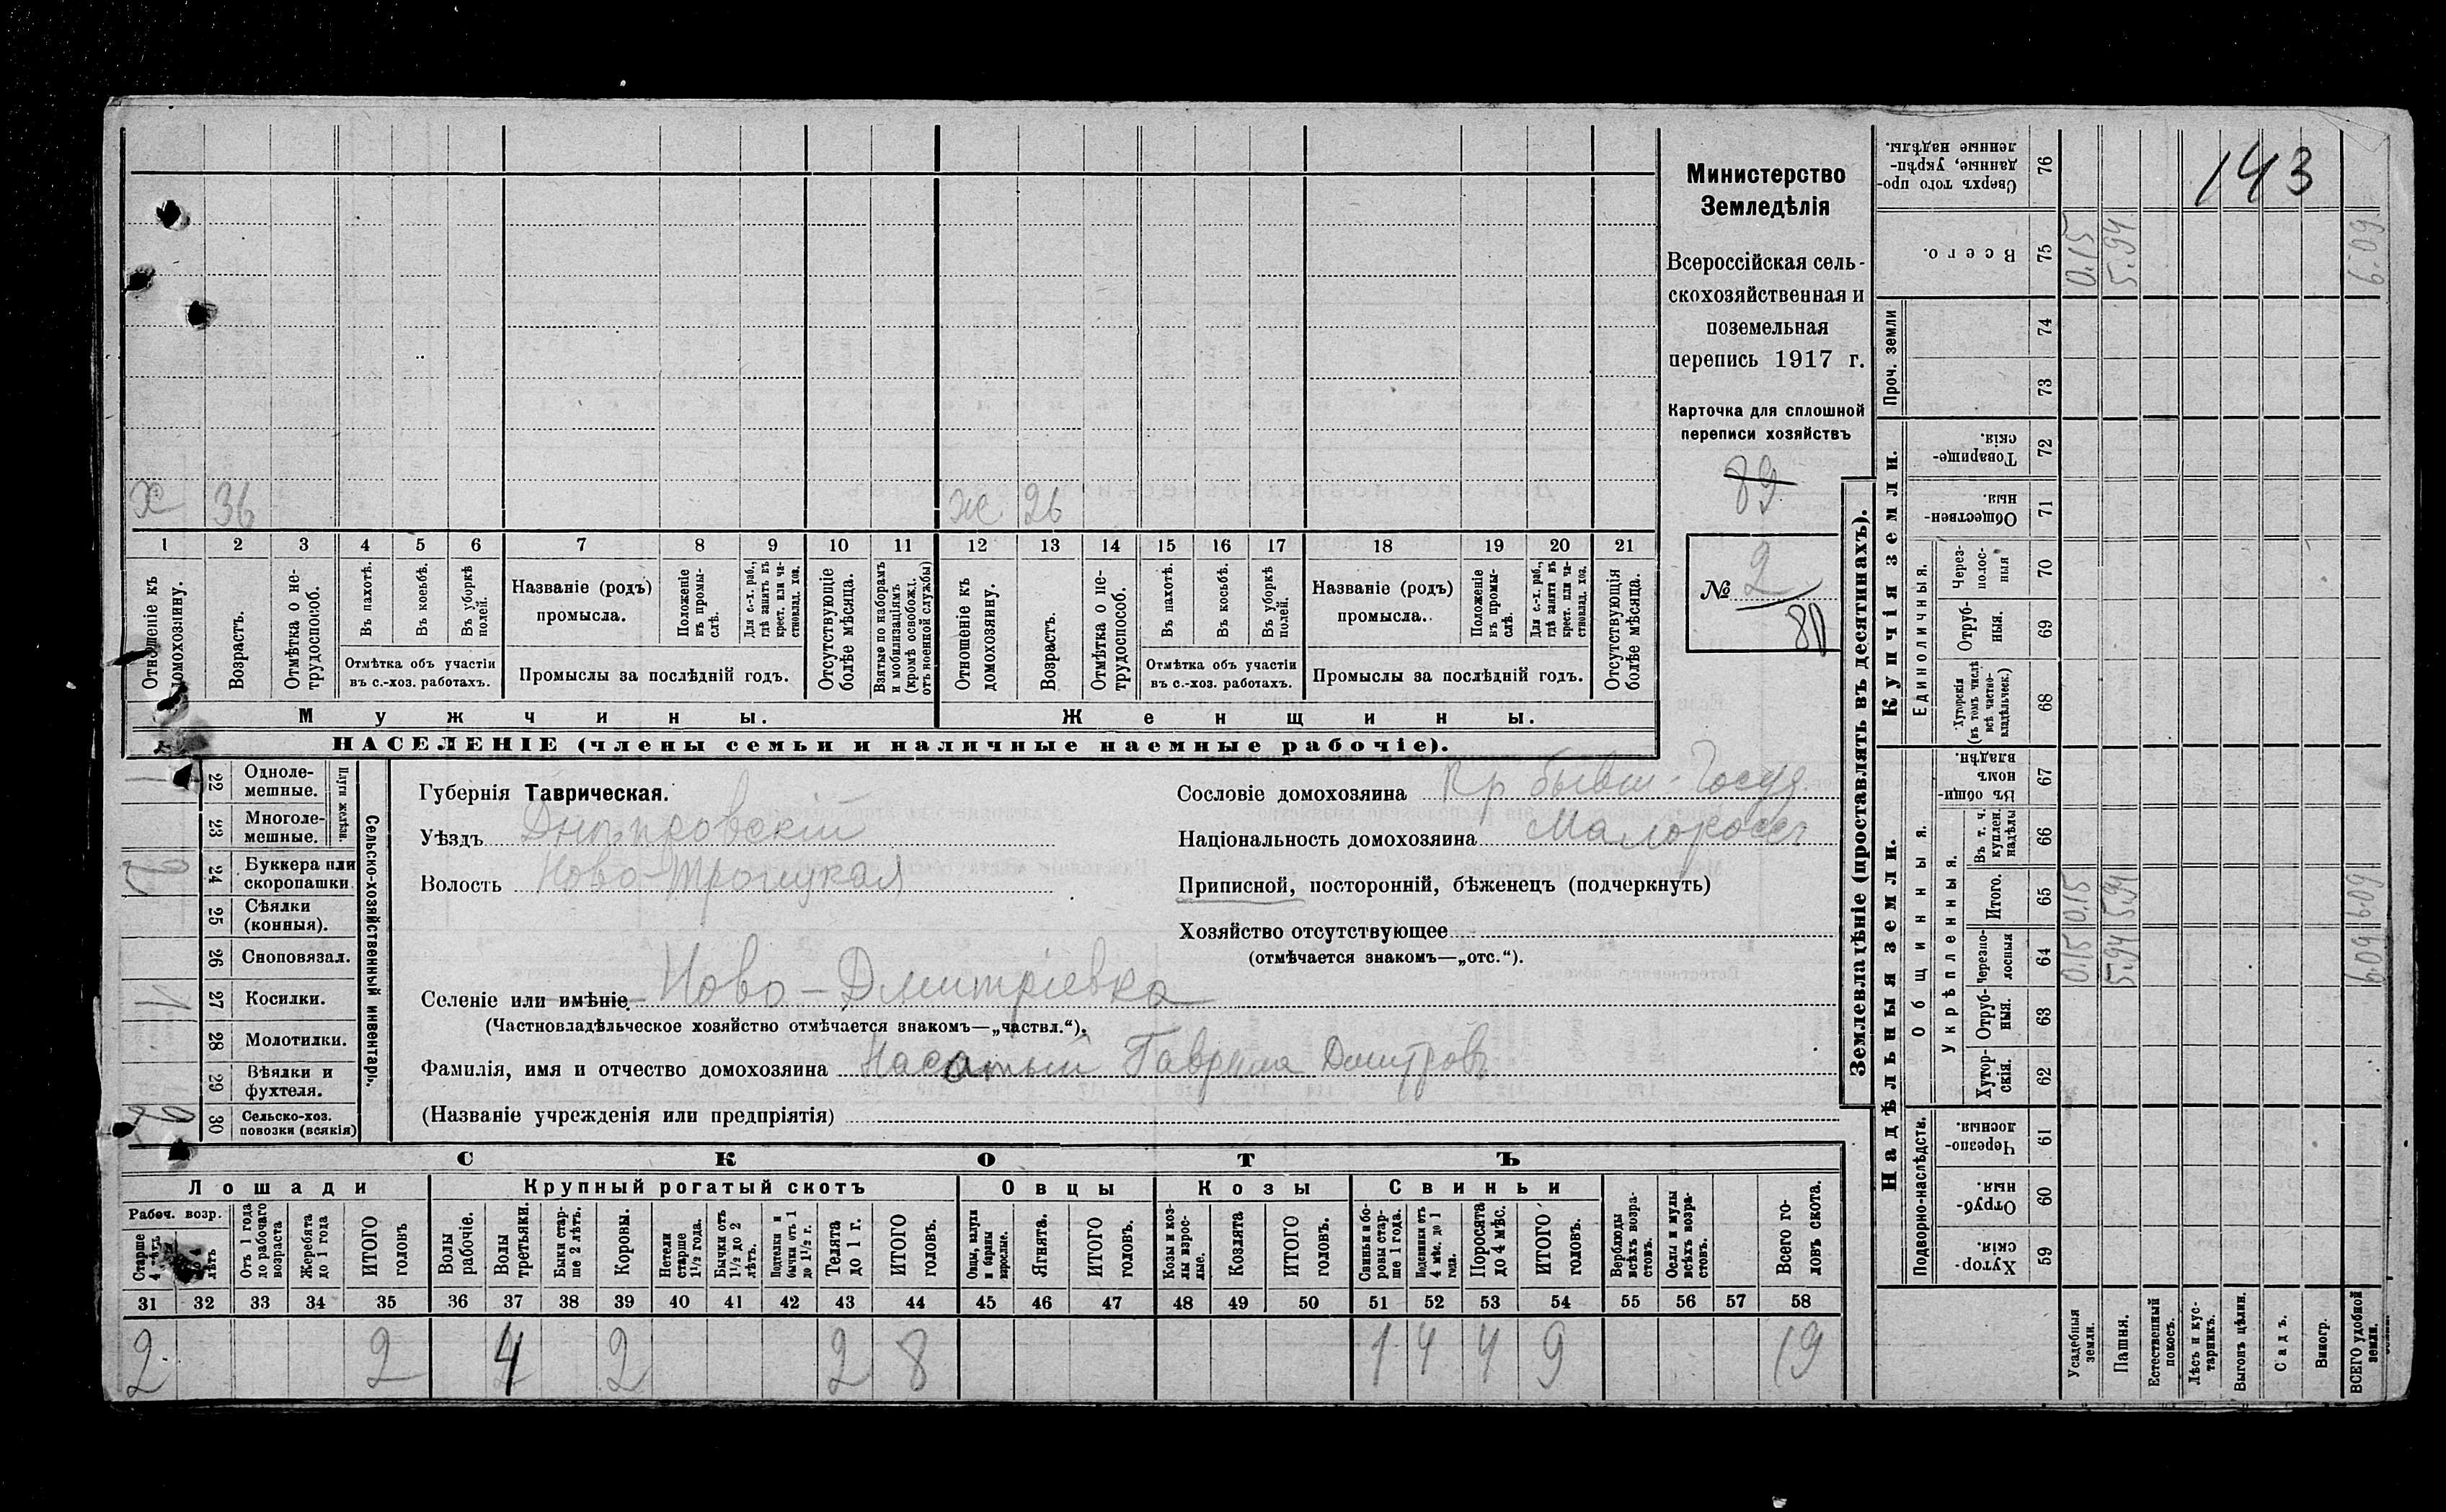 Министерство
Земледѣлія
Всероссійская сель-
скохозяйственная и
поземельная
перепись 1917 г.
Карточка для сплошной
переписи хозяйствъ
89
№ 2
143
Х 36
Ж 26
1 2 3 4 5 6 7 8 9 10 11 12 13 14 15 16 17 18 19 20 21
Отношеніе къ домохозяину.
Возрастъ.
Отмѣтка о не-трудоспособ.
Въ пахотѣ.
Въ косьбѣ.
Въ уборкѣ полей.
Отмѣтка объ участіи
въ с.-хоз. работахъ.
Названіе (родъ)
промысла.
Положеніе въ промы-слѣ.
Для с.-х. раб., гдѣ занятъ въ крест. или ча-стновлад. хоз.
Промыслы за послѣдній годъ.
Отсутствующіе болѣе мѣсяца.
Взятые по наборамъ и мобилизаціямъ (кромѣ освобожд. отъ военной службы)
Отношеніе къ домохозяину.
Возрастъ.
Отмѣтка о не-трудоспособ.
Въ пахотѣ.
Въ косьбѣ.
Въ уборкѣ полей.
Отмѣтка объ участіи
въ с.-хоз. работахъ.
Названіе (родъ)
промысла.
Положеніе въ промы-слѣ.
Для с.-х. раб., гдѣ занята въ крест. или ча-стновлад. хоз.
Промыслы за послѣдній годъ.
Отсутствующія болѣе мѣсяца.
Мужчины.
Женщины.
НАСЕЛЕНІЕ (члены семьи и наличные наемные рабочіе).
Сельско-хозяйственный инвентарь.
Плуги желѣзн.
22 Одноле-мешные.
23 Многоле-мешные.
24 Буккера или скоропашки
25 Сѣялки (конныя).
26 Сноповязал.
27 Косилки.
28 Молотилки.
29 Вѣялки и фухтеля.
30 Сельско-хоз. повозки (всякія)
Губернія Таврическая.
Уѣздъ Днѣпровскій
Волость Ново-Троицкая
Сословіе домохозяина Кр бывш. Госуд.
Національность домохозяина Малоросс
Приписной, посторонній, бѣженецъ (подчеркнуть)
Хозяйство отсутствующее
(отмѣчается знакомъ—„отс.“).
Селеніе или имѣніе Ново-Дмитріевка
(Частновладѣльческое хозяйство отмѣчается знакомъ—„частвл.“).
Фамилія, имя и отчество домохозяина Насатый Гаврила Дмитровъ
(Названіе учрежденія или предпріятія)
СКОТЪ
Лошади
Крупный рогатый скотъ
Овцы
Козы
Свиньи
Рабоч. возр.
Старше 4 лѣтъ
лѣтъ
Отъ 1 года до рабочаго возраста
Жеребята до 1 года
ИТОГО головъ
Волы рабочіе.
Волы третьяки.
Быки стар-ше 2 лѣтъ.
Коровы.
Нетели старше 1½ года.
Бычки отъ 1½ до 2 лѣтъ.
Подтелки и бычки отъ 1 до 1½ г.
Телята до 1 г.
ИТОГО головъ.
Овцы, валухи и бараны взрослые.
Ягнята.
ИТОГО головъ.
Козы и коз-лы взрос-лые.
Козлята
ИТОГО головъ.
Свиньи и бо-ровы стар-ше 1 года.
Подсвинки отъ 4 мѣс. до 1 года.
Поросята до 4 мѣс.
ИТОГО головъ.
Верблюды всѣхъ возра-стовъ.
Ослы и мулы всѣхъ возра-стовъ.
Всего го-ловъ скота.
31 32 33 34 35 36 37 38 39 40 41 42 43 44 45 46 47 48 49 50 51 52 53 54 55 56 57 58
2 2 4 2 2 8 1 4 4 9 19
Землевладѣніе (проставлять въ десятинахъ).
Надѣльныя земли.
Купчія земли.
Проч. земли
Подворно-наслѣдств.
Общинныя.
Укрѣпленныя.
Единоличныя.
Хутор-скія. 59
Отруб-ныя. 60
Черезпо-лосныя. 61
Хутор-скія. 62
Отруб-ныя. 63
Черезпо-лосныя 64
Итого. 65
Въ т. ч. куплен. надѣлы 66
Въ общи-номъ владѣн. 67
Хуторскія (въ томъ числѣ всѣ частно-владѣльческ.) 68
Отруб-ныя. 69
Через-полос-ныя 70
Обществен-ныя. 71
Товарище-скія. 72
73
74
Всего. 75
Сверхъ того про-данные, укрѣп-ленные надѣлы. 76
Усадебныя земли. 0.15 0.15 0.15
Пашня. 5.94 5.94 5.94
Естественный покосъ.
Лѣсъ и кус-тарникъ.
Выгонъ цѣлин.
Садъ.
Виногр.
ВСЕГО удобной земли. 6.09 6.09 6.09